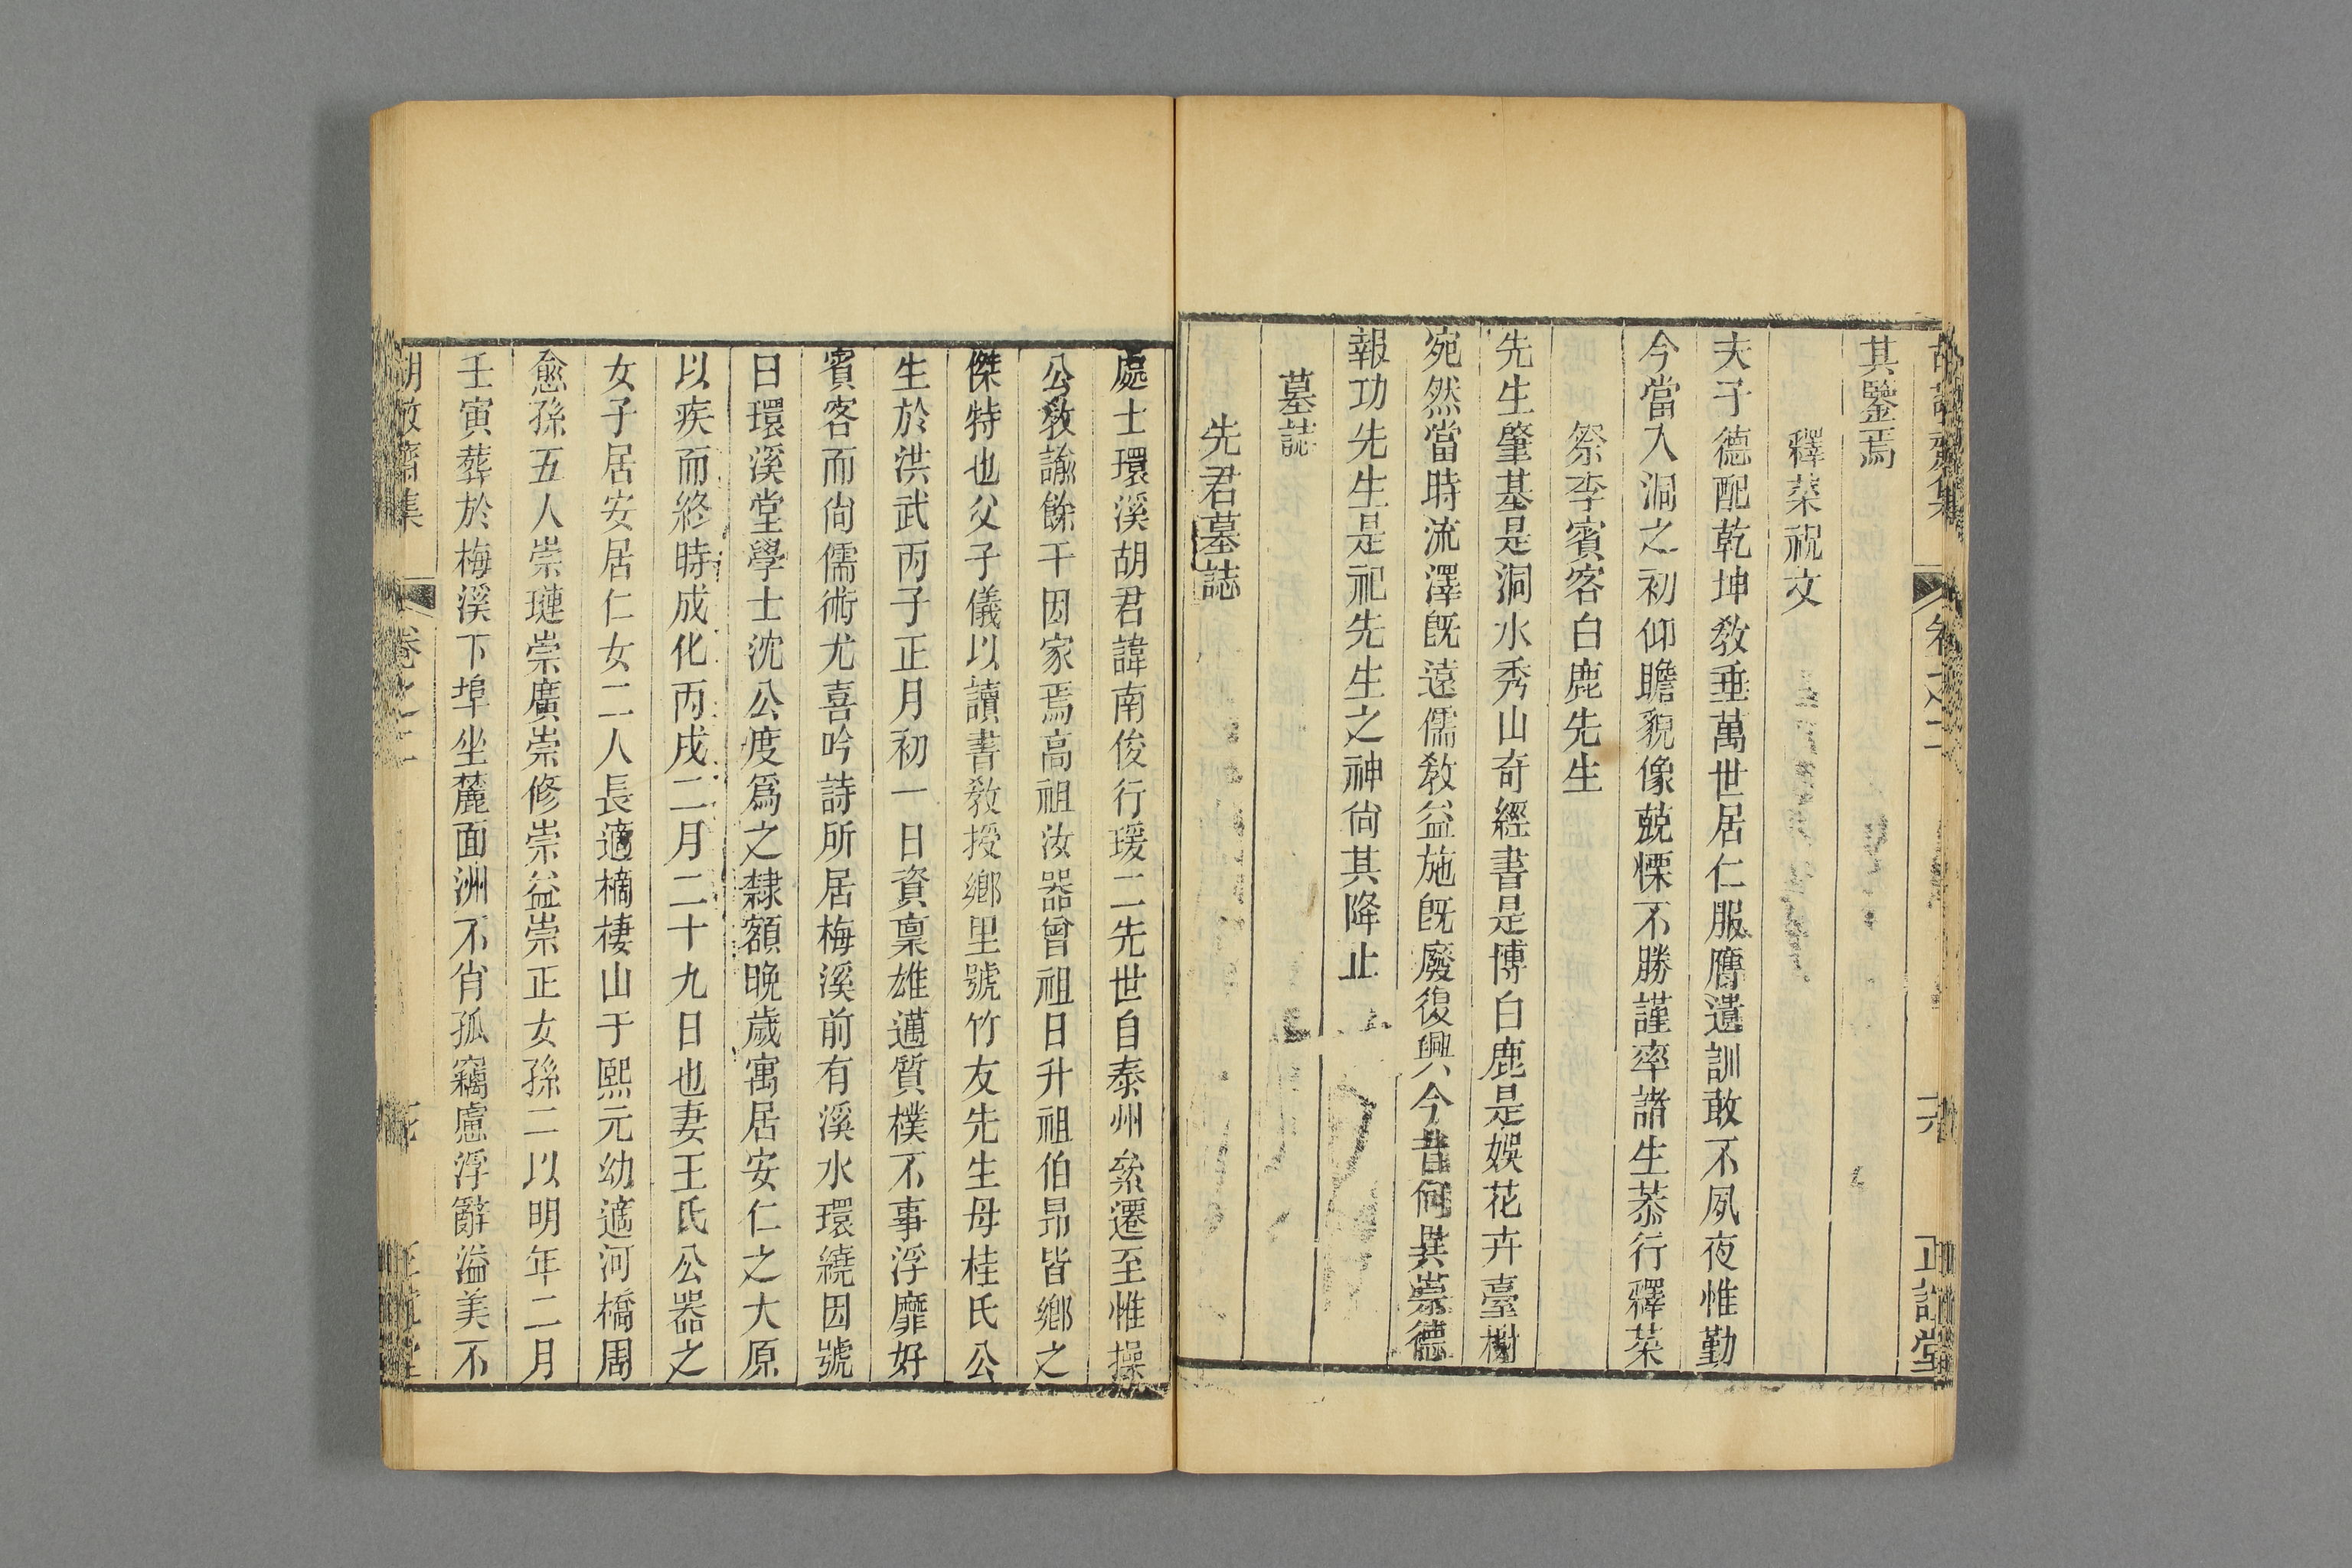 胡敬齋集 卷之二 六 正誼堂
其鑒焉
釋菜祝文
夫子德配乾坤敎垂萬世居仁服膺遺訓敢不夙夜惟勤
今當入洞之初仰瞻貌像兢慄不勝謹率諸生恭行釋菜
祭李賓客白鹿先生
先生肇基是洞水秀山奇經書是博白鹿是娛花卉臺榭
宛然當時流澤旣遠儒敎益施旣廢復興今昔何異崇德
報功先生是祀先生之神尙其降止
墓誌
先君墓誌
處士環溪胡君諱南俊行瑗二先世自泰州絫遷至惟操
公敎諭餘干因家焉高祖汝器曾祖日升祖伯昂皆鄉之
傑特也父子儀以讀書敎授鄉里號竹友先生母桂氏公
生於洪武丙子正月初一日資稟雄邁質樸不事浮靡好
賓客而尙儒術尤喜吟詩所居梅溪前有溪水環繞因號
曰環溪堂學士沈公度爲之隸額晚歲寓居安仁之大原
以疾而終時成化丙戌二月二十九日也妻王氏公器之
女子居安居仁女二人長適樀棲山于熙元幼適河橋周
愈孫五人崇璉崇廣崇修崇益崇正女孫二以明年二月
壬寅葬於梅溪下埠坐麓面洲不肖孤竊慮浮辭溢美不
胡敬齋集 卷之二 正誼堂